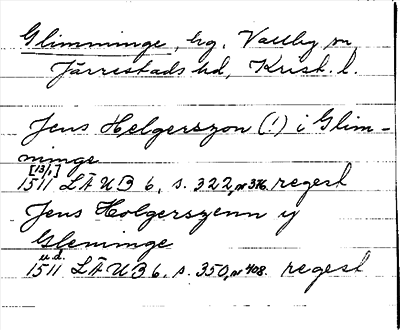 Glimminge, hg, Vallby sn
Järrestads hd, Krist. l.
Jens Helgerszon (!) i Glim-
minge
[13/1]
1511 LÄUB 6, s. 322, nr 376. regest
Jens Holgerszenn y
Gleminge
u.d.
1511 LÄUB 6, s. 350, nr 408. regest